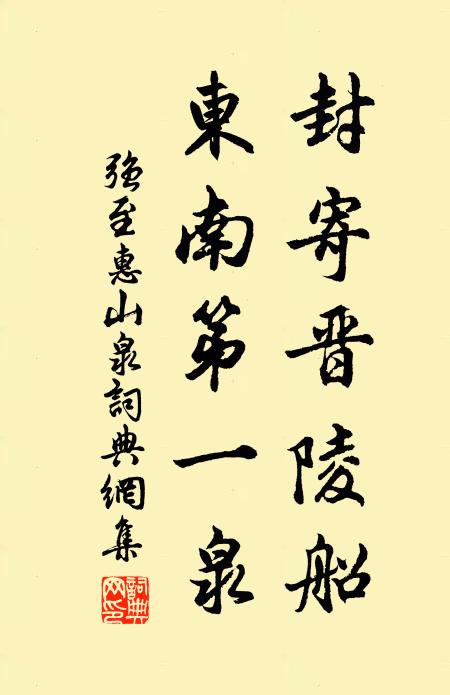 封寄晋陵船
東南第一泉
強至惠山泉詞典網集
詞典
网印